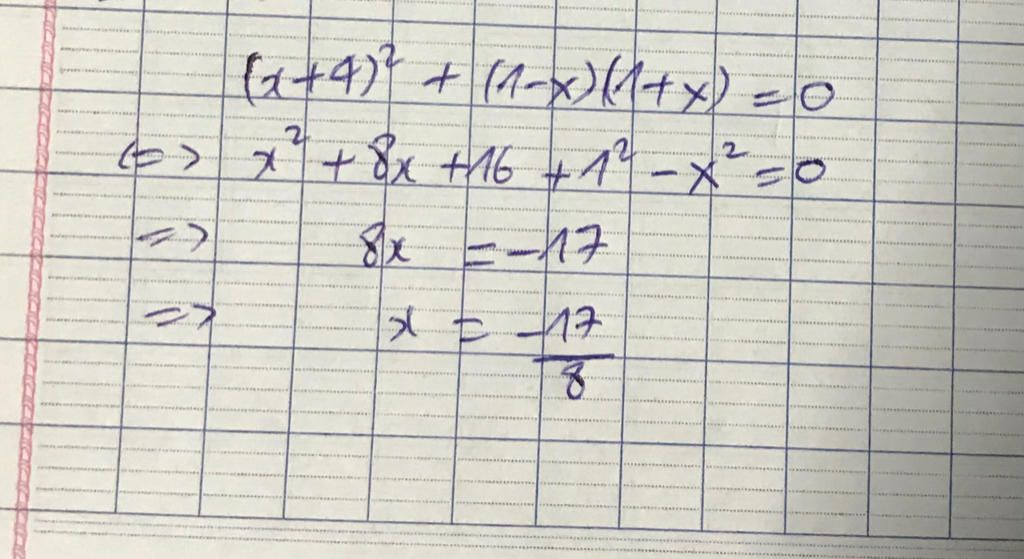 (x+4)² + (1-x)(1+x) = 0
<=> x² + 8x + 16 + 1² - x² = 0
=> 8x = -17
=> x = -17/8